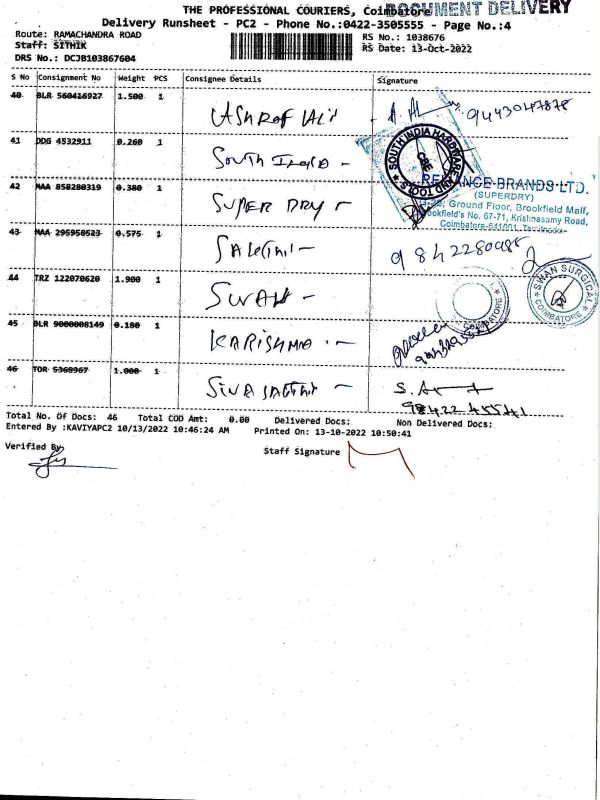 THE PROFESSIONAL COURIERS, Coimbatore
DOCUMENT DELIVERY
Delivery Runsheet - PC2 - Phone No.:0422-3505555 - Page No.:4
Route: RAMACHANDRA ROAD
Staff: SITHIK
DRS No.: DCJB103867604
RS No.: 1038676
RS Date: 13-Oct-2022
S No Consignment No Weight PCS Consignee Details Signature
40 BLR 560416927 1.500 1
41 DDG 4532911 0.260 1 South India -
SOUTH INDIA HARDWARE AND TOOLS
CBE
42 MAA 858280319 0.380 1 SUPER DRY -
RELIANCE BRANDS LTD.
(SUPERDRY)
Ground Floor, Brookfield Mall,
Brookfield's No. 67-71, Krishnasamy Road,
Coimbatore-641001, Tamilnadu
43 MAA 295950523 0.575 1
44 TRZ 122070620 1.900 1 SWAN -
SWAN SURGICAL
COIMBATORE
45 BLR 9000008149 0.180 1 KARISHMA -
46 TOR 5368967 1.000 1
Total No. Of Docs: 46 Total COD Amt: 0.00 Delivered Docs: Non Delivered Docs:
Entered By :KAVIYAPC2 10/13/2022 10:46:24 AM Printed On: 13-10-2022 10:50:41
Verified By
Staff Signature